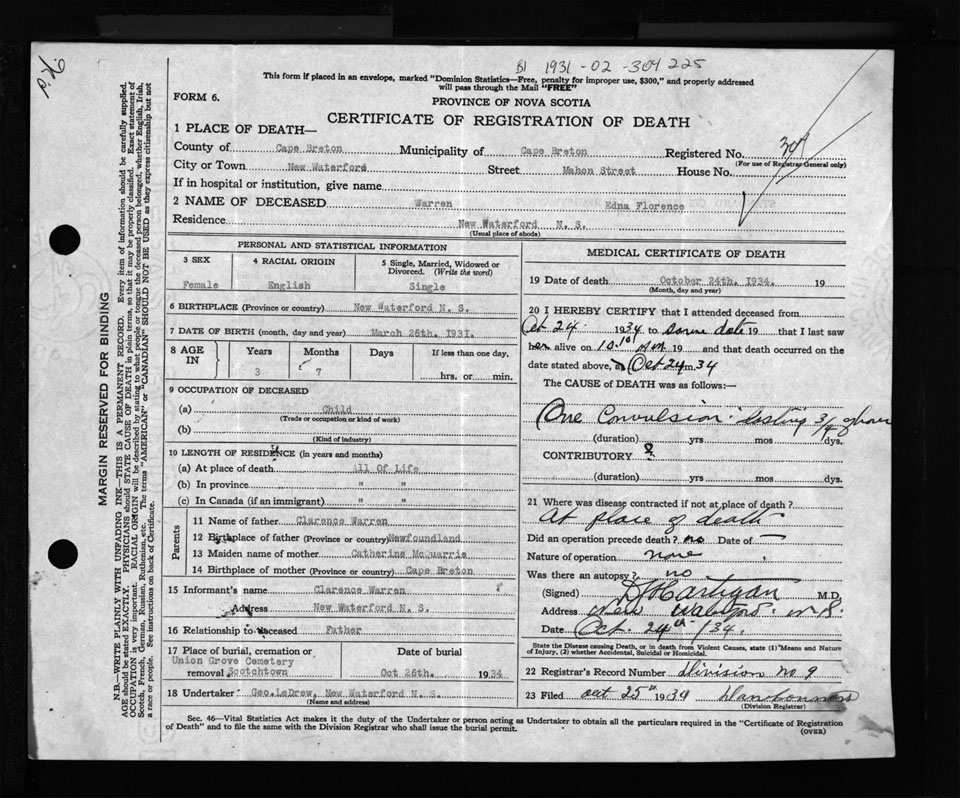 B1 1931-02-304 225
This form if placed in an envelope, marked "Dominion Statistics—Free, penalty for improper use, $300," and properly addressed
will pass through the Mail "FREE"
FORM 6.
PROVINCE OF NOVA SCOTIA
CERTIFICATE OF REGISTRATION OF DEATH
1 PLACE OF DEATH—
County of Cape Breton Municipality of Cape Breton Registered No. 304
(For use of Registrar-General only)
City or Town New Waterford Street Mahon Street House No.
If in hospital or institution, give name
2 NAME OF DECEASED Warren Edna Florence
Residence New Waterford N. S.
(Usual place of abode)
MARGIN RESERVED FOR BINDING
N.B.—WRITE PLAINLY WITH UNFADING INK—THIS IS A PERMANENT RECORD. Every item of information should be carefully supplied.
AGE should be stated EXACTLY. PHYSICIANS should STATE CAUSE OF DEATH in plain terms, so that it may be properly classified. Exact statement of
OCCUPATION is very important. RACIAL ORIGIN will be described by stating to what people or tongue the deceased person belonged, whether English, Irish,
Scotch, French, German, Russian, Ruthenian, etc. The terms "AMERICAN" or "CANADIAN" SHOULD NOT BE USED as they express citizenship but not
a race or people. See instructions on back of Certificate.
PERSONAL AND STATISTICAL INFORMATION
3 SEX 4 RACIAL ORIGIN 5 Single, Married, Widowed or
Divorced. (Write the word)
Female English Single
6 BIRTHPLACE (Province or Country) New Waterford N. S.
7 DATE OF BIRTH (month, day and year) March 26th. 1931.
8 AGE IN Years Months Days If less than one day,
3 7 hrs. or min.
9 OCCUPATION OF DECEASED
(a) Child
(Trade or occupation or kind of work)
(b)
(Kind of industry)
10 LENGTH OF RESIDENCE (in years and months)
(a) At place of death All Of Life
(b) In province " "
(c) In Canada (if an immigrant) " "
Parents
11 Name of father Clarence Warren
12 Birthplace of father (Province or country) Newfoundland
13 Maiden name of mother Catherine McQuarrie
14 Birthplace of mother (Province or country) Cape Breton
15 Informant's name Clarence Warren
Address New Waterford N. S.
16 Relationship to deceased Father
17 Place of burial, cremation or Date of burial
Union Grove Cemetery
removal Scotchtown Oct 26th. 1934
18 Undertaker Geo. LeDrew, New Waterford N. S.
(Name and address)
MEDICAL CERTIFICATE OF DEATH
19 Date of death October 24th. 1934. 19
(Month, day and year)
20 I HEREBY CERTIFY that I attended deceased from
Oct 24. 1934 to same date 19 that I last saw
her alive on 10.10 AM 19 and that death occurred on the
date stated above, at Oct 24 m. 34
The CAUSE of DEATH was as follows:—
One Convulsion lasting 3/4 of hour
(duration) yrs mos dys.
CONTRIBUTORY
(duration) yrs mos dys.
21 Where was disease contracted if not at place of death?
At place of death
Did an operation precede death? no Date of —
Nature of operation none
Was there an autopsy? no
(Signed) D Hartigan M.D.
Address New Waterford. N.S.
Date Oct 24th /34.
State the Disease causing Death, or in death from Violent Causes, state (1) Means and Nature
of Injury, (2) whether Accidental, Suicidal or Homicidal.
22 Registrar's Record Number Division no 9
23 Filed oct 25th 1934
(Division Registrar)
Sec. 46—Vital Statistics Act makes it the duty of the Undertaker or person acting as Undertaker to obtain all the particulars required in the "Certificate of Registration
of Death" and to file the same with the Division Registrar who shall issue the burial permit.
(OVER)